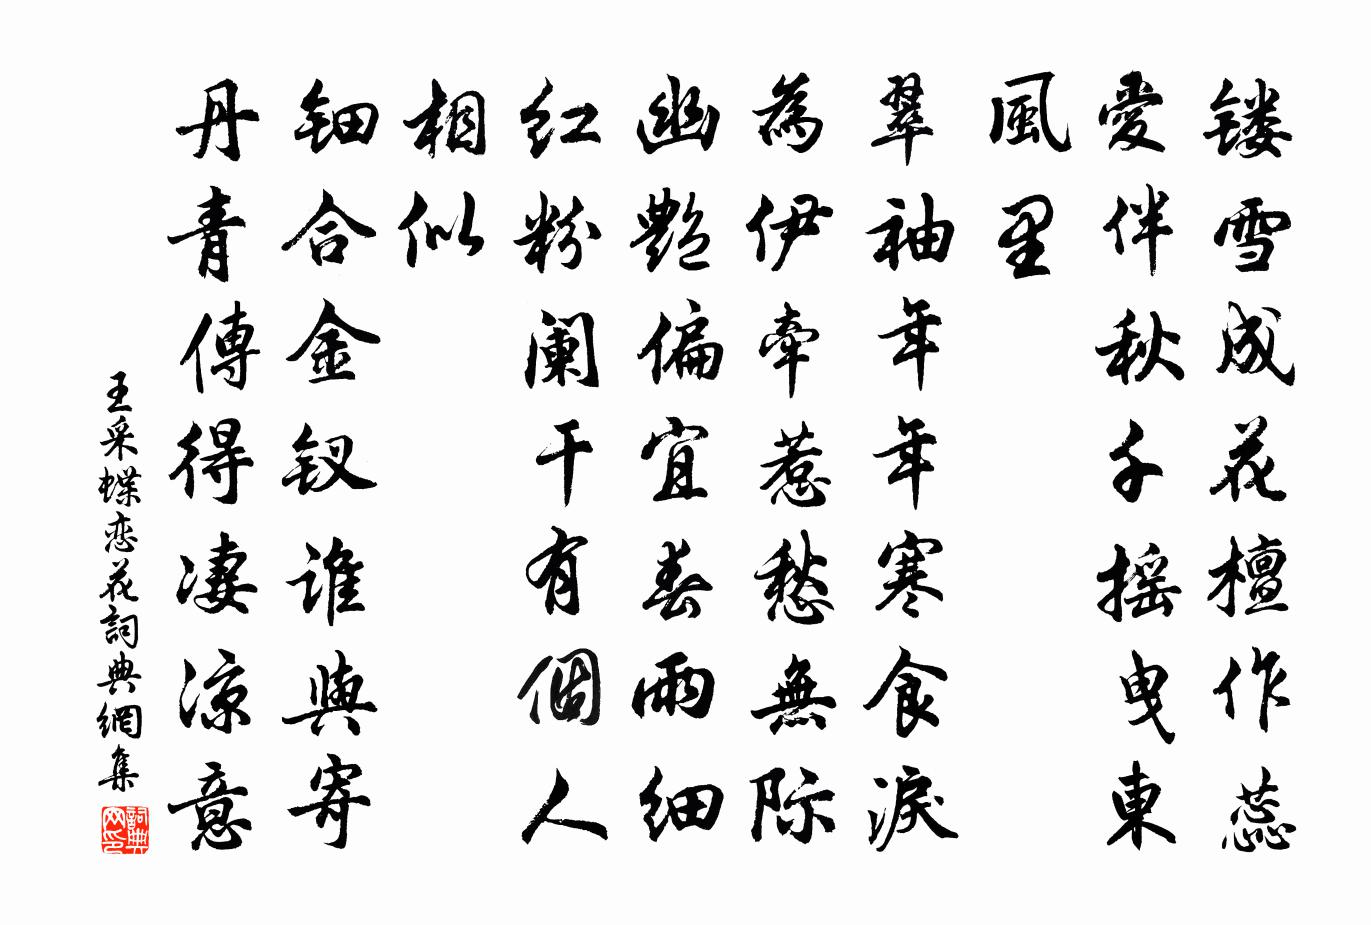 镂雪成花檀作蕊
愛伴秋千摇曳東
風里
翠袖年年寒食淚
為伊牽惹愁無際
幽艷偏宜春雨细
红粉阑干有個人
相似
钿合金钗谁與寄
丹青傳得凄涼意
王采蝶恋花詞典網集
詞典网印